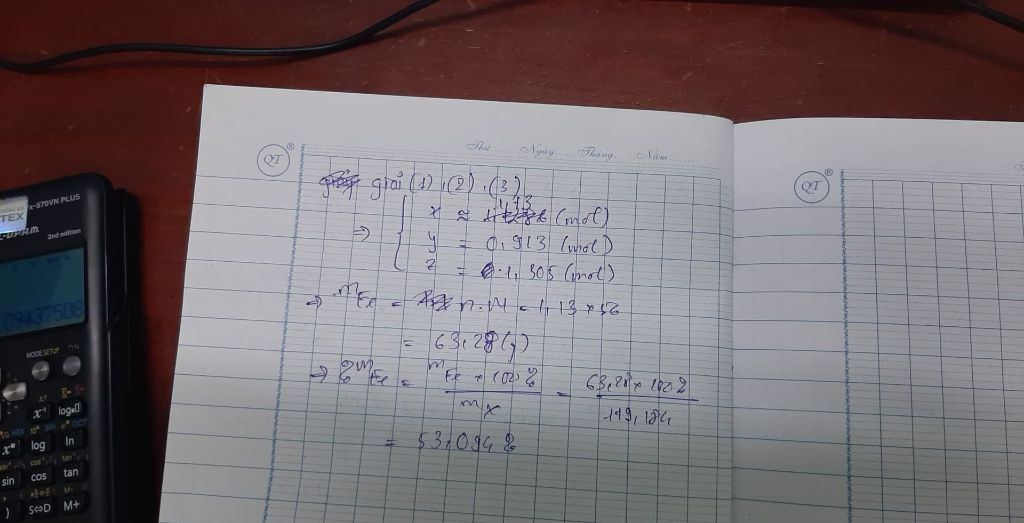 QT®
Thứ......Ngày......Tháng......Năm......
QT®
giải (1), (2), (3)
x ≈ 1,13 (mol)
⇒ { y = 0,913 (mol)
z = 1,305 (mol)
⇒ mFe = n.M = 1,13 × 56
= 63,28 (g)
⇒ %mFe = mFe × 100% / mX = 63,28 × 100% / 119,184
= 53,094 %
fx-570VN PLUS
2nd edition
MODE SETUP
ON
x⁻¹
log
ln
sin
cos
tan
)
S⇔D
M+